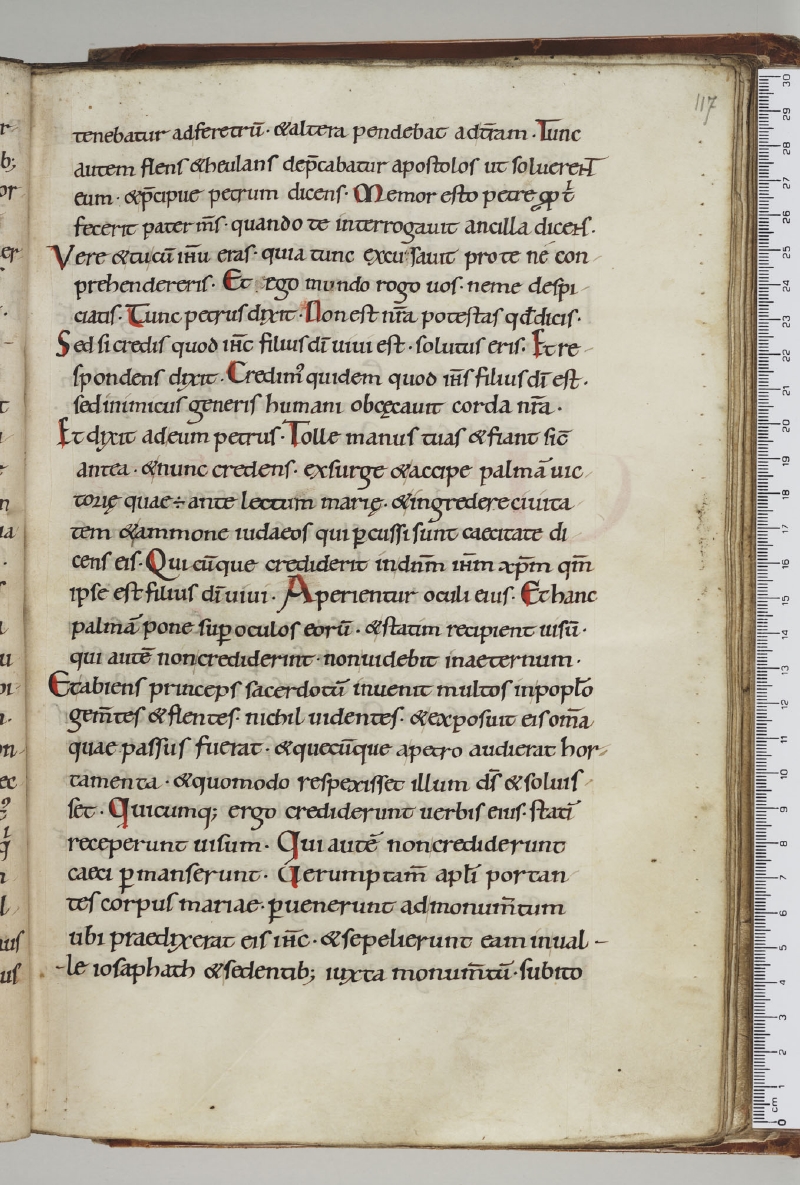 117
tenebatur adferetrū· &altera pendebat adtr̄am· Tunc
autem flens &heulans dep̄cabatur apostolos ut soluerent
eum· &p̄cipue petrum dicens· Memor esto petre
fecerit pater m̄s· quando te interrogauit ancilla dicens·
Vere &tu cū ih̄u eras· quia tunc excusauit pro te ne con
prehendereris· Et ego mundo rogo uos· neme despi
ciatis· Tunc petrus dixit· Non est nr̄a potestas qd̄ dicis·
Sed si credis quod ih̄c filius dī uiui est· solutus eris· Et re
spondens dixit· Credim᾽ quidem quod ih̄s filius dī est·
sed inimicus generis humani obcęcauit corda nr̄a·
Et dixit adeum petrus· Tolle manus tuas &fiant sic̄
antea· &nunc credens· exsurge &accipe palmā uic
torię quae÷ante lectum marię· &ingredere ciuita
tem &ammone iudaeos qui p̱cussi sunt caecitate di
cens eis· Qui cūque crediderit indn̄m ih̄m xp̄m qm̄
ipse est filius dī uiui· Aperientur oculi eius· Et hanc
palmā pone sup̱ oculos eorū· &statim recipient uisū·
qui autē noncrediderint· nonuidebit inaeternum·
Etabiens princeps sacerdotū inuenit multos inpopl̄o
gem̄tes &flentes· nichil uidentes· &exposuit eis om̄a
quae passus fuerat· &quecūque apetro audierat hor
tamenta· &quomodo respexisset illum dś &soluis
set· Quicumq; ergo crediderunt uerbis eius· statī
receperunt uisum· Qui autē noncrediderunt
caeci p̱manserunt· Qerumptam̄ apl̄i portan
tes corpus mariae· p̱uenerunt admonum̄tum
ubi praedixerat eis ih̄c· &sepelierunt eam inual-
-le iosaphath &sedentib; iuxta monum̄tū· subito